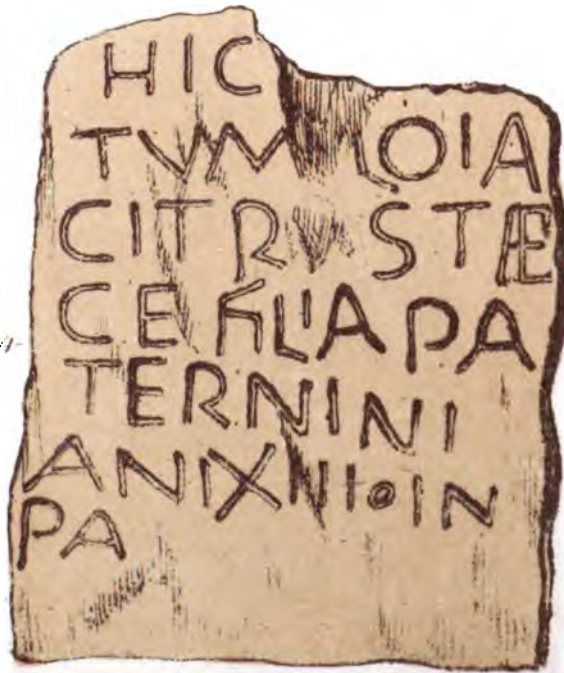 HIC
TVM LOIA
CITR STÆ
CE FILIA PA
TERNINI
ANIXIII IN
PA